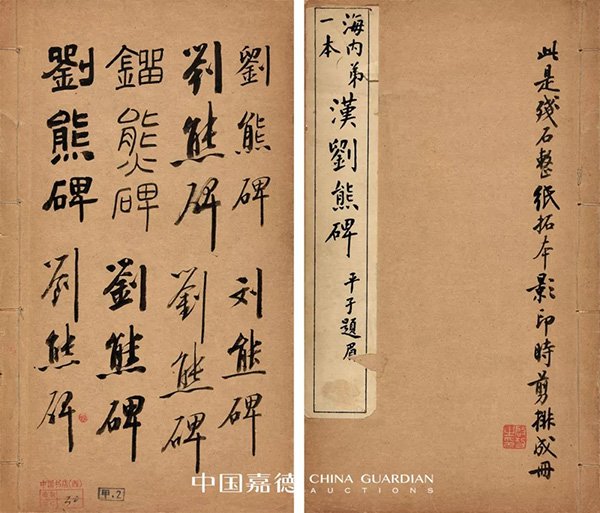 劉熊碑
劉熊碑
鐂熊碑
劉熊碑
刘熊碑
劉熊碑
劉熊碑
劉熊碑
中国书店(西)
甲.2
海内弟
一本
漢劉熊碑
平子題眉
此是殘石整紙拓本影印時剪排成冊
中国嘉德
CHINA GUARDIAN
AUCTIONS